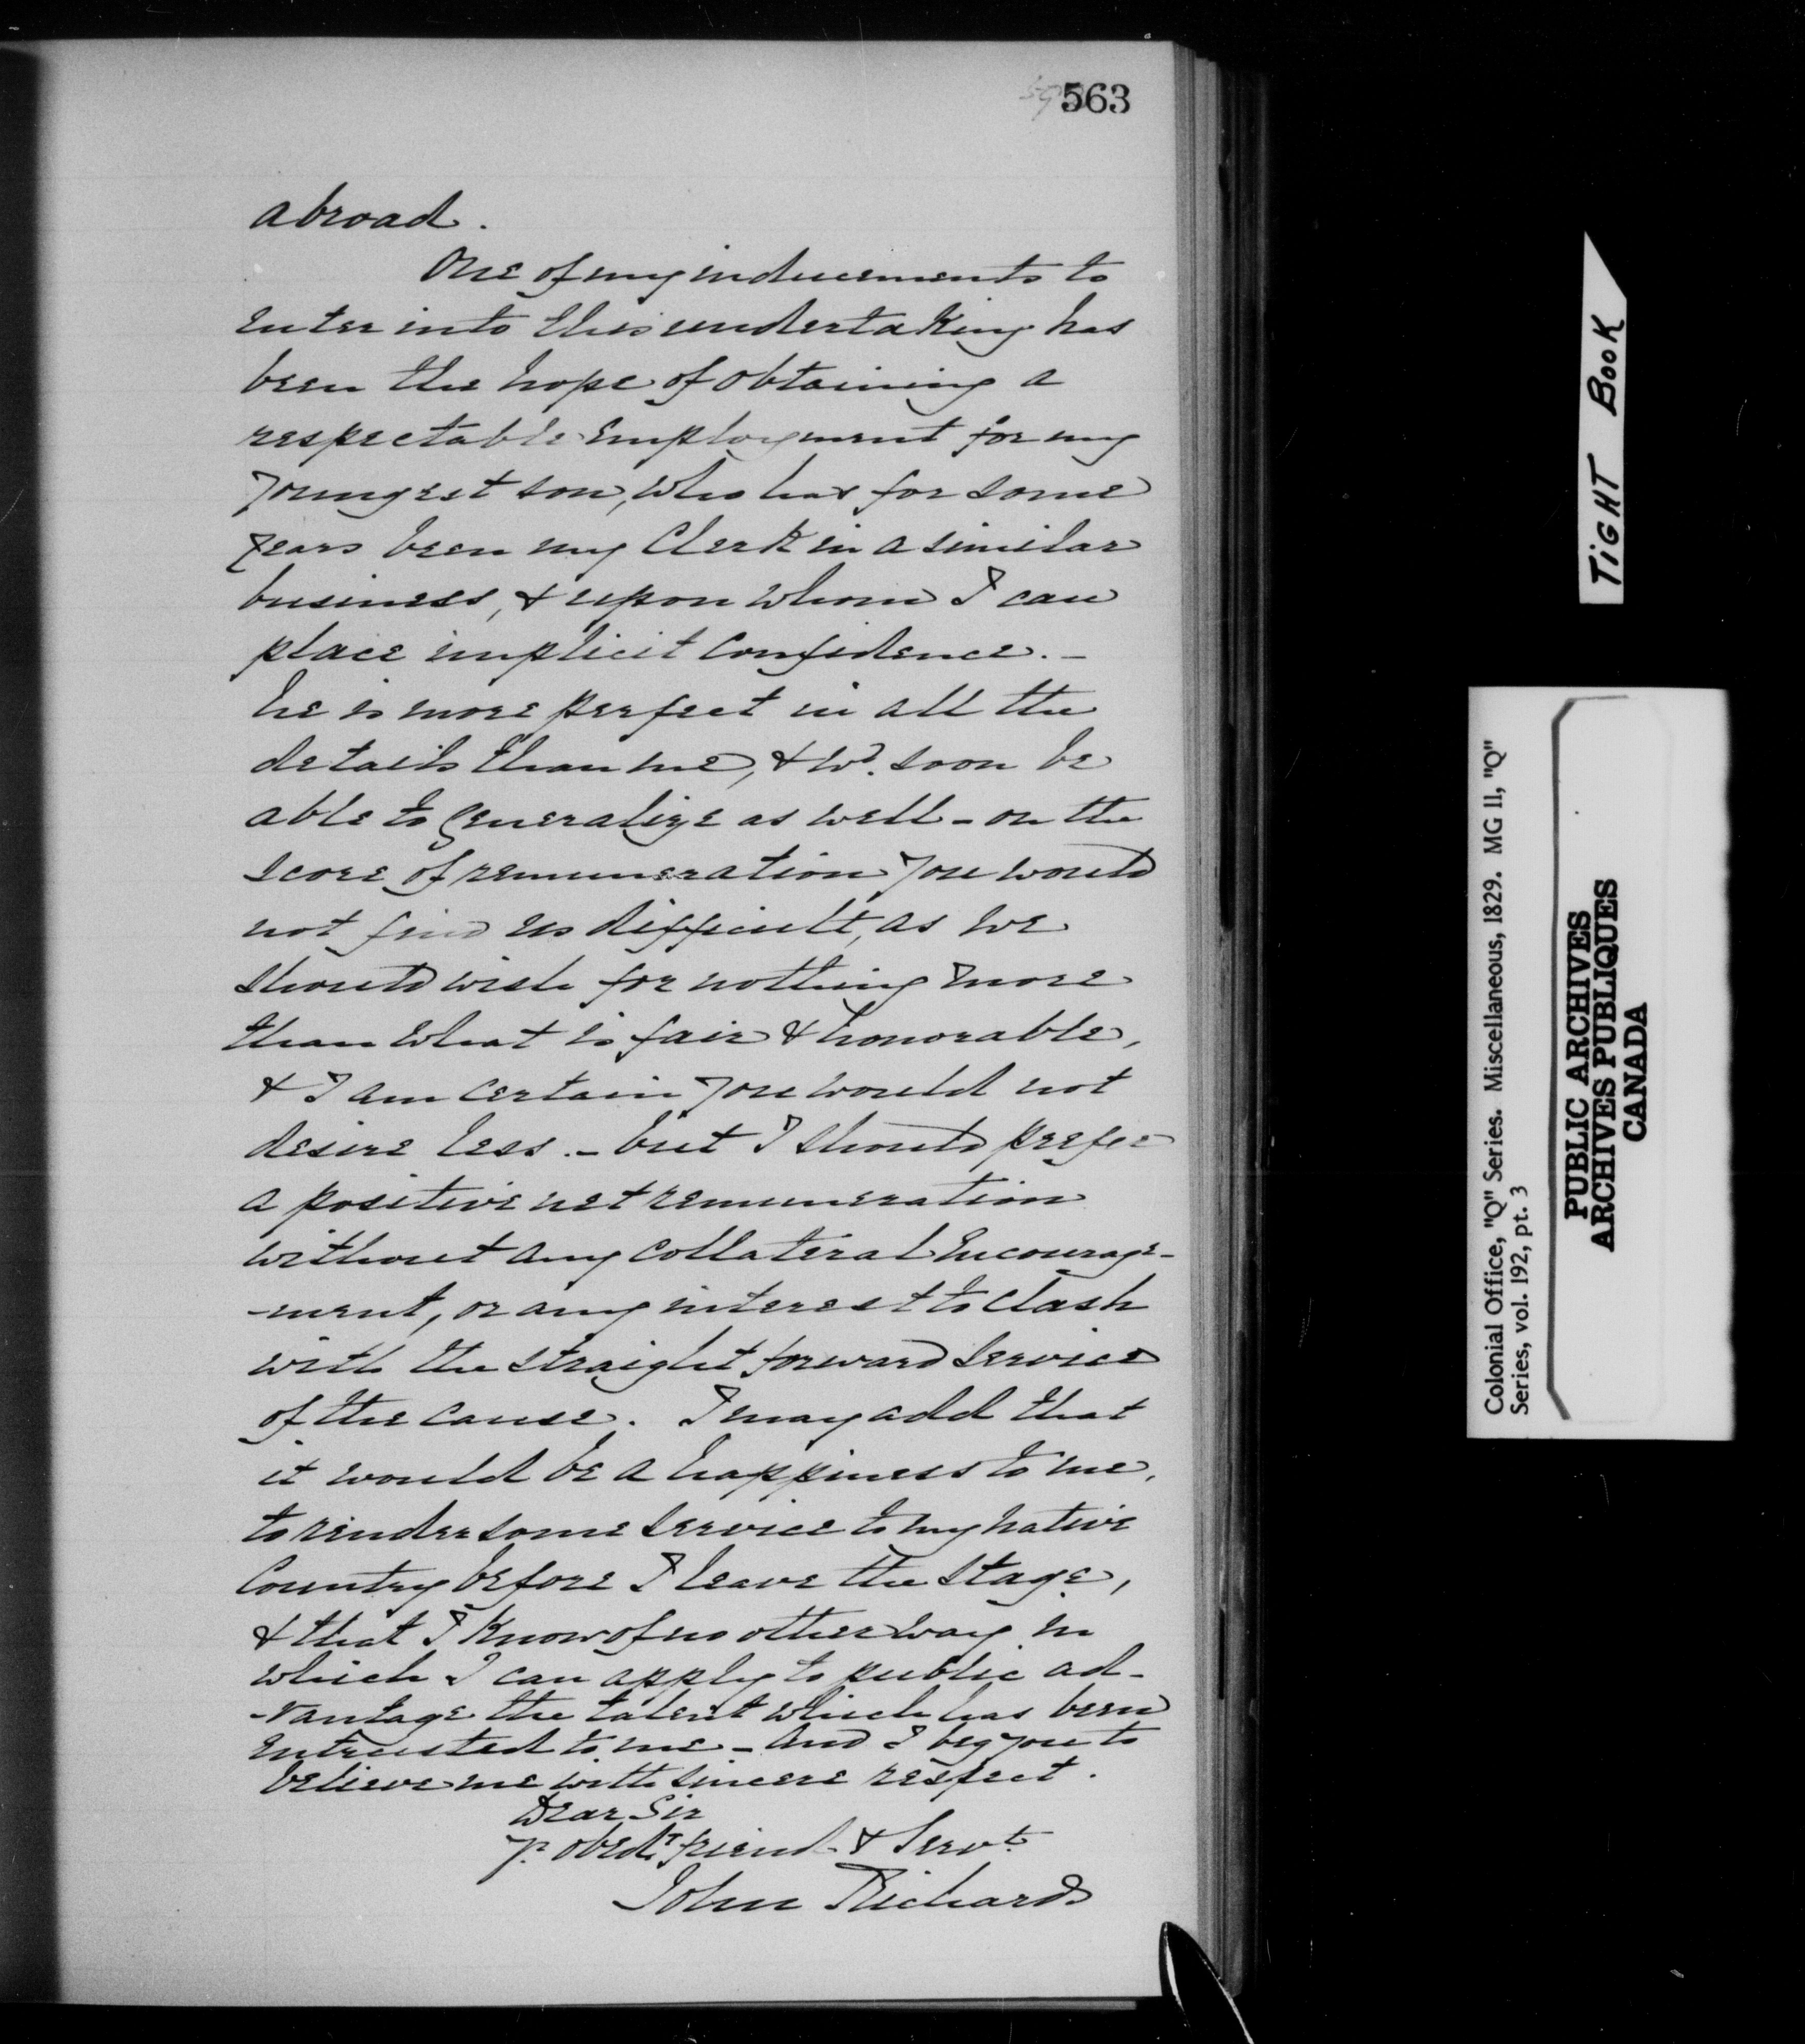 563
abroad.
One of my inducements to
enter into this undertaking has
been the hope of obtaining a
respectable employment for my
youngest son, who has for some
years been my Clerk in a similar
business, & upon whom I can
place implicit confidence. -
he is more perfect in all the
details than me, & wd. soon be
able to generalize as well - on the
score of remuneration you would
not find us difficult, as we
should wish for nothing more
than what is fair & honorable,
& I am certain you would not
desire less. - but I should prefer
a positive net remuneration
without any collateral encourage-
-ment, or any interest to clash
with the straight forward service
of the cause. I may add that
it would be a happiness to me,
to render some service to my native
Country before I leave the stage,
& that I know of no other way in
which I can apply to public ad-
-vantage the talent which has been
entrusted to me - and I beg you to
believe me with sincere respect.
Dear Sir
yr. obedt. friend & Servt.
John Richards
TIGHT BOOK
Colonial Office, "Q" Series. Miscellaneous, 1829. MG 11, "Q"
Series, vol. 192, pt. 3
PUBLIC ARCHIVES
ARCHIVES PUBLIQUES
CANADA